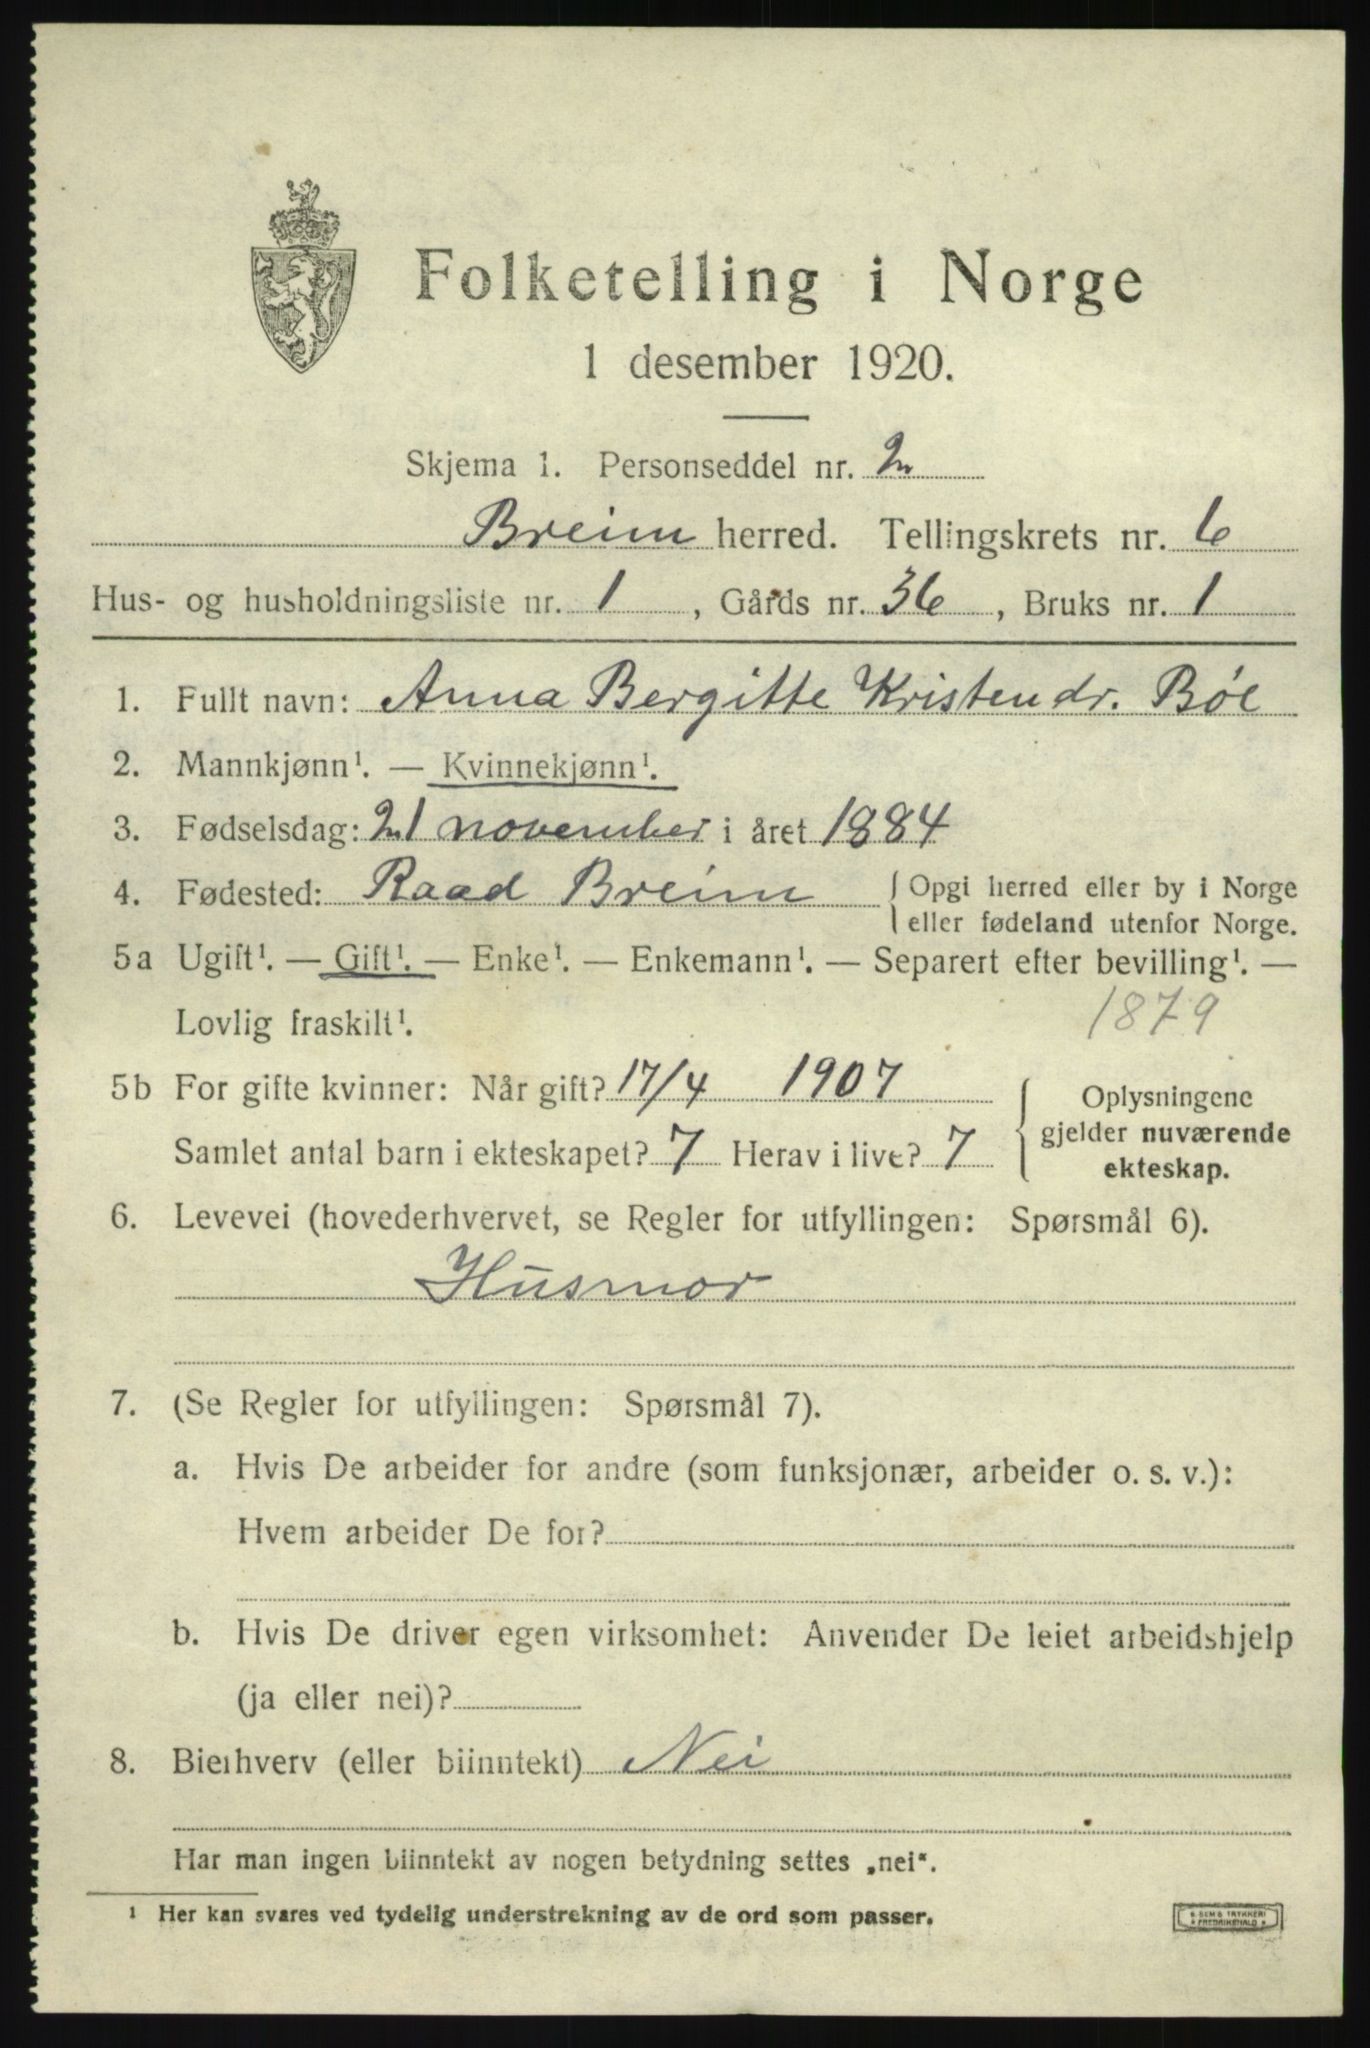 Folketelling i Norge
1 desember 1920.
Skjema 1. Personseddel nr. 2
Breim herred. Tellingskrets nr. 6
Hus- og husholdningsliste nr. 1, Gårds nr. 36, Bruks nr. 1
1. Fullt navn: Anna Bergitte Kristendr. Bøe
2. Mannkjønn¹. — Kvinnekjønn¹.
3. Fødselsdag: 21 november i året 1884
4. Fødested: Raad Breim { Opgi herred eller by i Norge
eller fødeland utenfor Norge.
5a Ugift¹. — Gift¹. — Enke¹. — Enkemann¹. — Separert efter bevilling¹. —
Lovlig fraskilt¹. 1879
5b For gifte kvinner: Når gift? 17/4 1907
Samlet antal barn i ekteskapet? 7 Herav i live? 7
{ Oplysningene
gjelder nuværende
ekteskap.
6. Levevei (hovederhvervet, se Regler for utfyllingen: Spørsmål 6).
Husmor
7. (Se Regler for utfyllingen: Spørsmål 7).
a. Hvis De arbeider for andre (som funksjonær, arbeider o. s. v.):
Hvem arbeider De for?
b. Hvis De driver egen virksomhet: Anvender De leiet arbeidshjelp
(ja eller nei)?
8. Bierhverv (eller biinntekt) Nei
Har man ingen biinntekt av nogen betydning settes „nei“.
¹ Her kan svares ved tydelig understrekning av de ord som passer.
E. SEMS TRYKKERI
FREDRIKSHALD